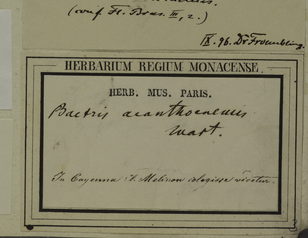 (conf. Fl. Bras. III, 2.)
IX. 96. Dr Froembling.
HERBARIUM REGIUM MONACENSE.
HERB. MUS. PARIS.
Bactris acanthocnemis
Mart.
In Cayenna Melinon collegisse dicitur.